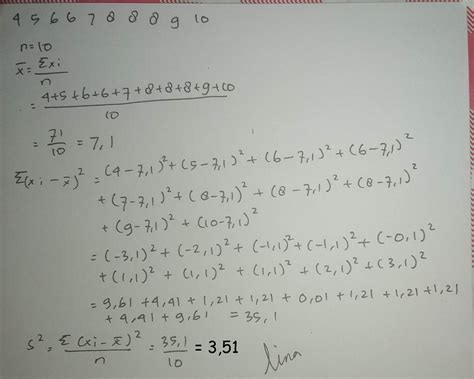 4 5 6 6 7 8 8 8 9 10
n=10
x̄ = Σxi / n
= 4+5+6+6+7+8+8+8+9+10 / 10
= 71 / 10 = 7,1
Σ(xi - x̄)² = (4-7,1)² + (5-7,1)² + (6-7,1)² + (6-7,1)²
+ (7-7,1)² + (8-7,1)² + (8-7,1)² + (8-7,1)²
+ (9-7,1)² + (10-7,1)²
= (-3,1)² + (-2,1)² + (-1,1)² + (-1,1)² + (-0,1)²
+ (1,1)² + (1,1)² + (1,1)² + (2,1)² + (3,1)²
= 9,61 + 4,41 + 1,21 + 1,21 + 0,01 + 1,21 + 1,21 + 1,21
+ 4,41 + 9,61 = 35,1
s² = Σ(xi - x̄)² / n = 35,1 / 10 = 3,51
lina